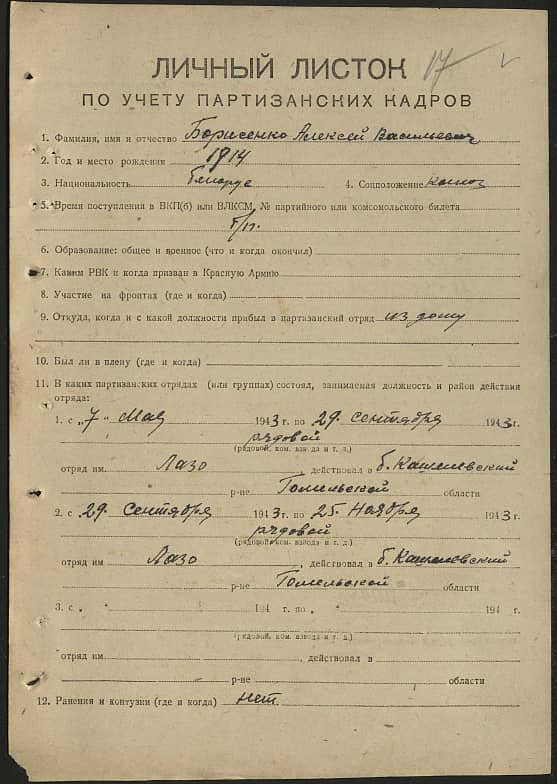 17
ЛИЧНЫЙ ЛИСТОК
ПО УЧЕТУ ПАРТИЗАНСКИХ КАДРОВ
1. Фамилия, имя и отчество Борисенко Алексей Васильевич
2. Год и место рождения 1914
3. Национальность беларус 4. Соцположение колхоз
5. Время поступления в ВКП(б) или ВЛКСМ, № партийного или комсомольского билета
б/п.
6. Образование: общее и военное (что и когда окончил)
7. Каким РВК и когда призван в Красную Армию
8. Участие на фронтах (где и когда)
9. Откуда, когда и с какой должности прибыл в партизанский отряд из дому
10. Был ли в плену (где и когда)
11. В каких партизанских отрядах (или группах) состоял, занимаемая должность и район действия
отряда:
1. с „7" Мая 1943 г. по 29 сентября 1943 г.
рядовой
(рядовой, ком. взвода и т. д.)
отряд им Лазо, действовал в б. Кошелевский
р-не Гомельской области
2. с 29 Сентября 1943 г. по 25 Ноября 1943 г.
рядовой
(рядовой, ком. взвода и т. д.)
отряд им Лазо, действовал в б. Кошелевский
р-не Гомельской области
3. с 194 г. по 194 г.
(рядовой, ком. взвода и т. д.)
отряд им , действовал в
р-не области
12. Ранения и контузии (где и когда) нет